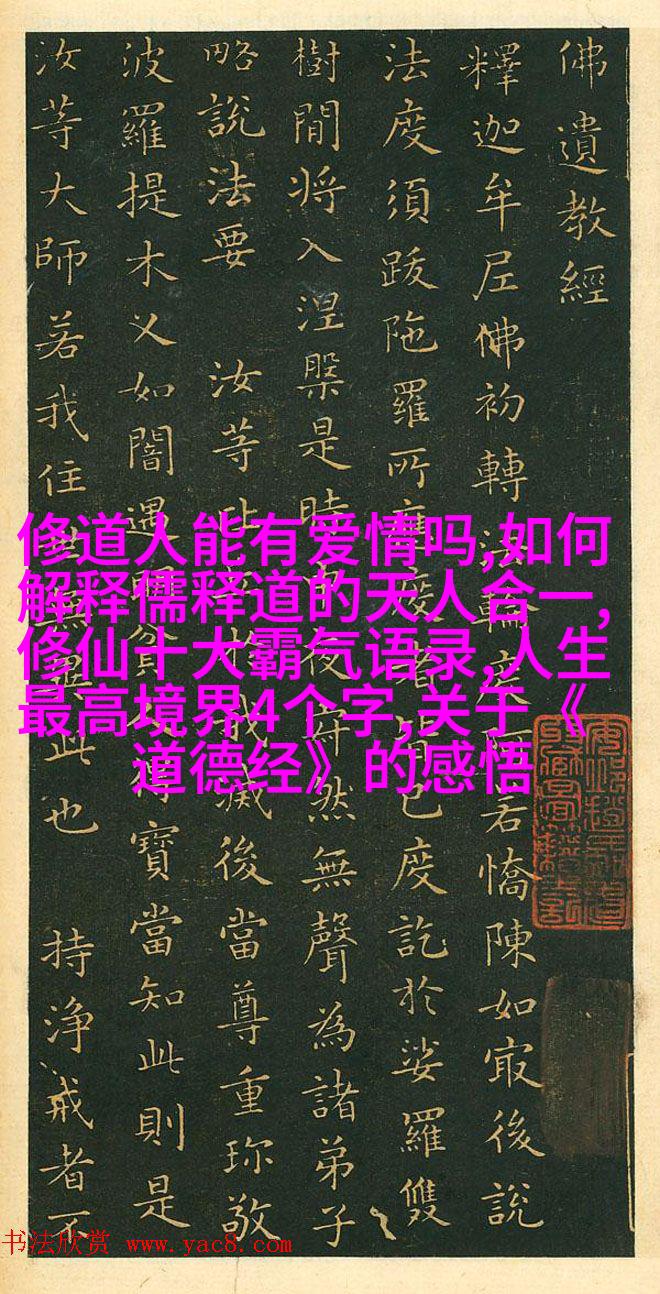 佛遺教經
釋迦牟尼佛初轉法輪度阿若憍陳如㝡後說
法度須跋陁羅所應度者皆已度訖於娑羅雙
樹間將入涅槃是時中夜寂然無聲為諸弟子
略說法要 汝等比丘於我滅後當尊重珍敬
波羅提木叉如闇遇明貧人得寶當知此則是
汝等大師若我住世無異此也 持淨戒者不
修道人能有爱情吗,如何
解释儒释道的天人合一,
修仙十大霸气语录,人生
最高境界4个字,关于《
道德经》的感悟
书法欣赏 www.yac8.com